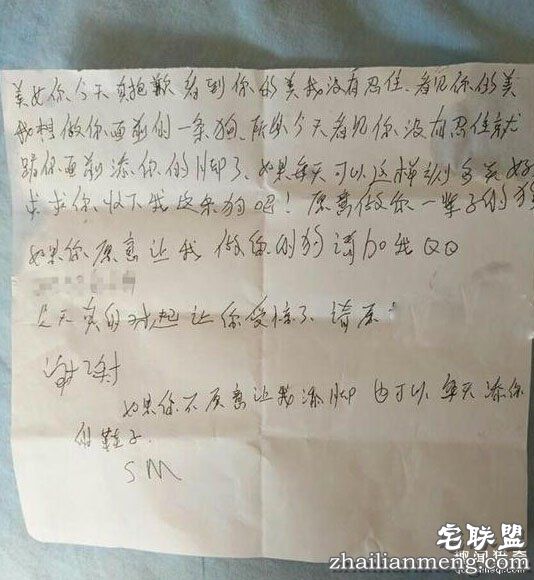 美女你今天真抱歉看到你的美我没有忍住.看见你的美
我想做你面前的一条狗.所以今天看见你没有忍住就
跪你面前添你的脚了.如果每天可以这样该多美好
求求你收下我这条狗吧!愿意做你一辈子的狗
如果你愿意让我做你的狗请加我QQ
今天实在对起让你受惊了请原
谢谢
如果你不愿意让我添脚也可以每天添你
的鞋子.
SM
宅联盟
zhailianmeng.com